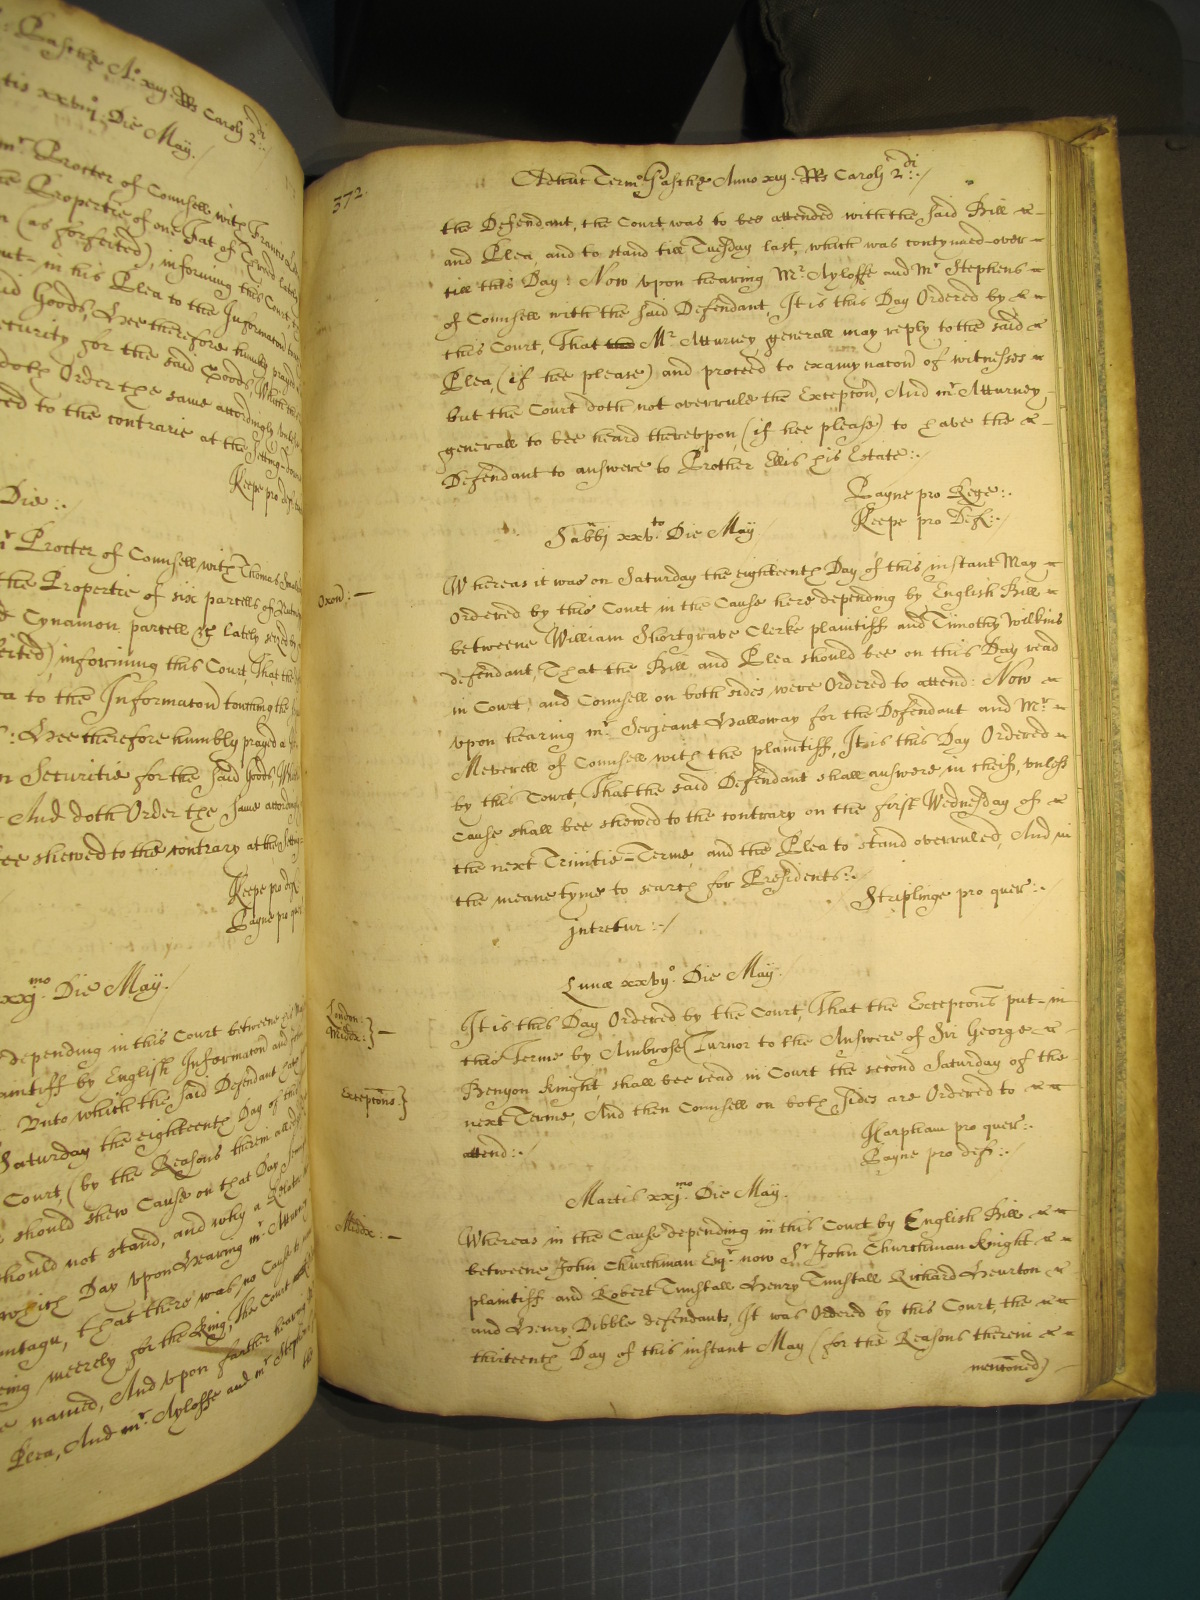 : Paschæ Ao xiij. RRs Caroli 2di:./
tis xxiij. Die May./
mr. Procter of Counsell with Francis
the Propertie of one Bat of
n (as forfeited), informing this Court,
put-in his Plea to the Informacon
id Goods, Hee therefore humbly prayed
ecurity for the said Goods, Which
doth Order the same accordingly
ed to the contrarie at the Setting
Keepe pro def
Die:.
r Procter of Counsell with Thomas
the Propertie of six parcells of
& Cynamon parcell &c lately seized by
feited), informing this Court, That the
ea to the Informacon touching the
: Hee therefore humbly prayed a
n Securitie for the said Goods,
And doth Order the same accordingly
ee shewed to the contrary at the Setting
Keepe pro def
Payne pro quer
xxjmo. Die May./
depending in this Court betweene
aintiff by English Informacon and
Unto which the said Defendant
Saturday the eighteenth Day of this
Court, (by the Reasons therein
should shew Cause on that Day
should not stand, and why a
which Day upon Hearing mr. Atturney
ntage, that there was no Cause
eing meerely for the King, The Court
e named, And upon further hearing
Plea, And mr. Ayloffe and mr Stephens
the
372.
Adhuc Termo Paschæ Anno xiij. RRs Caroli 2di:./
the Defendant, the Court was to bee attended with the said Bill &
and Plea, and to stand till Tuesday last, which was contynued over
till this Day: Now upon hearing Mr. Ayloffe and Mr Stephens
of Counsell with the said Defendant, It is this Day Ordered by &
this Court, That Mr Atturney generall may reply to the said &
Plea, (if hee please) and proceed to examynacon of witnesses
but the Court doth not overrule the Excepcon, And mr. Atturney,
generall to bee heard thereupon, (if hee please) to have the &
Defendant to answere to Brother Ellis his Estate:./
Payne pro Rege:.
Keepe pro Def:./
Sabbi xxvto. Die May
Oxon: -
Whereas it was on Saturday the eighteenth Day of this instant May
Ordered by this Court in the Cause here depending by English Bill
betweene William Shortgrave Clerke plaintiff and Timothy Wilkins
defendant, That the Bill and Plea should bee on this Day read
in Court, and Counsell on both sides were Ordered to attend: Now
upon hearing mr. Serjeant Halloway for the Defendant and Mr.
Meverell of Counsell with the plaintiff, It is this Day Ordered
by this Court, That the said Defendant shall answere in cheif, unless
Cause shall bee shewed to the contrary on the first Wednesday of &
the next Trinitie-Terme, and the Plea to stand overruled, And in
the meane tyme to search for Presidents:.
Striplinge pro quer:.
intretur:./
Lunæ xxvijo. Die May./
London:
Middx:} -
It is this Day Ordered by the Court, That the Excepcons put-in
this Terme by Ambrose Turnor to the Answere of Sir George
Excepcons.}
Benyon Knight, shall bee read in Court the second Saturday of the
next Terme, And then Counsell on both sides are Ordered to
attend:./
Harpham pro quer:.
Payne pro def:./
Martis xxjmo. Die May.
Middx: -
Whereas in the Cause depending in this Court by English Bill
betweene John Churchman Esqr. now Sr. John Churchman Knight
plaintiff and Robert Tunstall Henry Tunstall Richard Heurton &
and Henry Dibble defendants, It was Ordered by this Court, the
thirteenth Day of this instant May (for the Reasons therein &
mentioned)